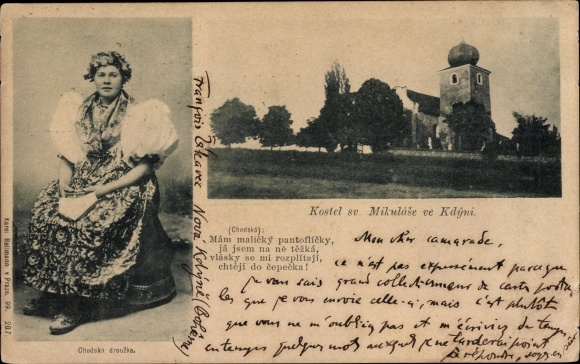 Kostel sv. Mikuláše ve Kdýni.
(Chodská):
Mám maličký pantoflíčky,
já jsem na ně těžká,
vlásky se mi rozplítají,
chtějí do čepečka!
Mon cher camarade,
ce n'est pas expressément parceque
je vous sais grand collectionneur de carte posta
les que je vous envoie celle-ci, mais c'est plutôt
que vous ne m'oubliez pas et m'écriviez de temps
en temps quelques mots auxquels je ne tarderai point
à répondre, soyez
François
Nová Kdýně (Bohême)
Chodská družka.
Karel Bellmann v Praze. 99. 287.